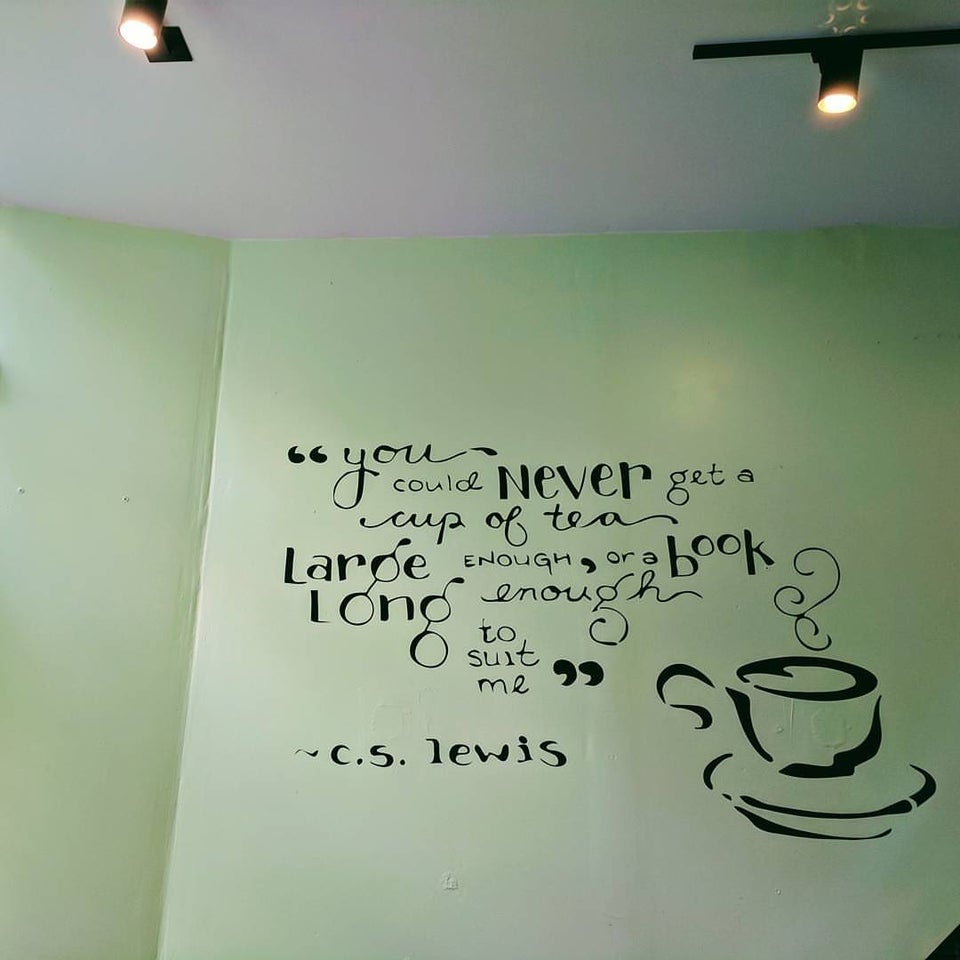 “you
could NEVER get a
cup of tea
Large ENOUGH, or a book
Long enough
to
suit
me”
~c.s. lewis